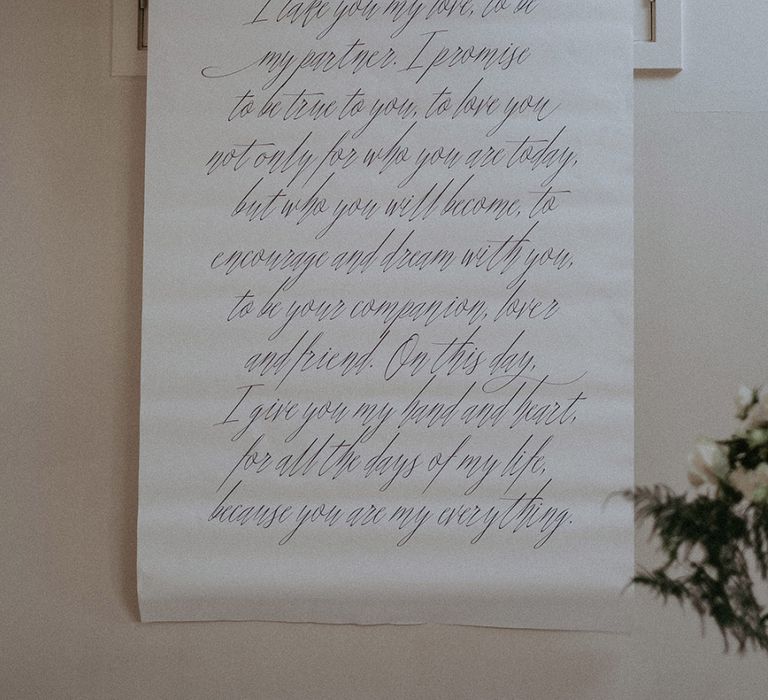 I take you my love, to be
my partner. I promise
to be true to you, to love you
not only for who you are today,
but who you will become, to
encourage and dream with you,
to be your companion, lover
and friend. On this day,
I give you my hand and heart,
for all the days of my life,
because you are my everything.